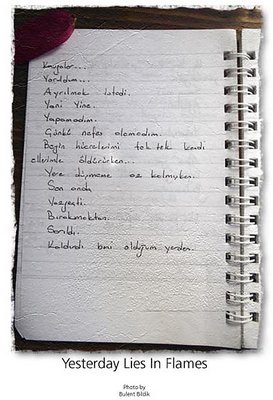 Kavgalar...
Yoruldum...
Ayrılmak istedi.
Yani Yine.
Yapamadım.
Çünkü nefes alamadım.
Beyin hücrelerimi tek tek kendi
ellerimle öldürürken...
Yere düşmeme az kalmışken.
Son anda
Vazgeçti.
Bırakmaktan.
Sarıldı.
Kaldırdı beni olduğum yerden.
Yesterday Lies In Flames
Photo by
Bulent Bildik